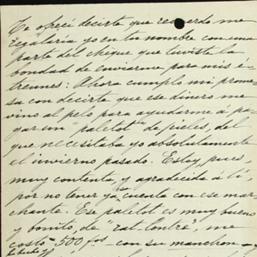 Te ofrecí decirte que recuerdo me
regalaría yo en tu nombre con una
parte del cheque que tuviste la
bondad de enviarme para mis é-
trennes: Ahora cumplo mi prome-
sa con decirte que ese dinero me
vino al pelo para ayudarme á pa-
gar un "paletot" de pieles, del
que necesitaba yo absolutamente
el invierno pasado. Estoy pues,
muy contenta, y agradecida á ti,
por no tener ya cuenta con ese mar-
chante. Ese paletot es muy bueno
y bonito, de "rat-loutre", me
costó 500 fos con su manchon